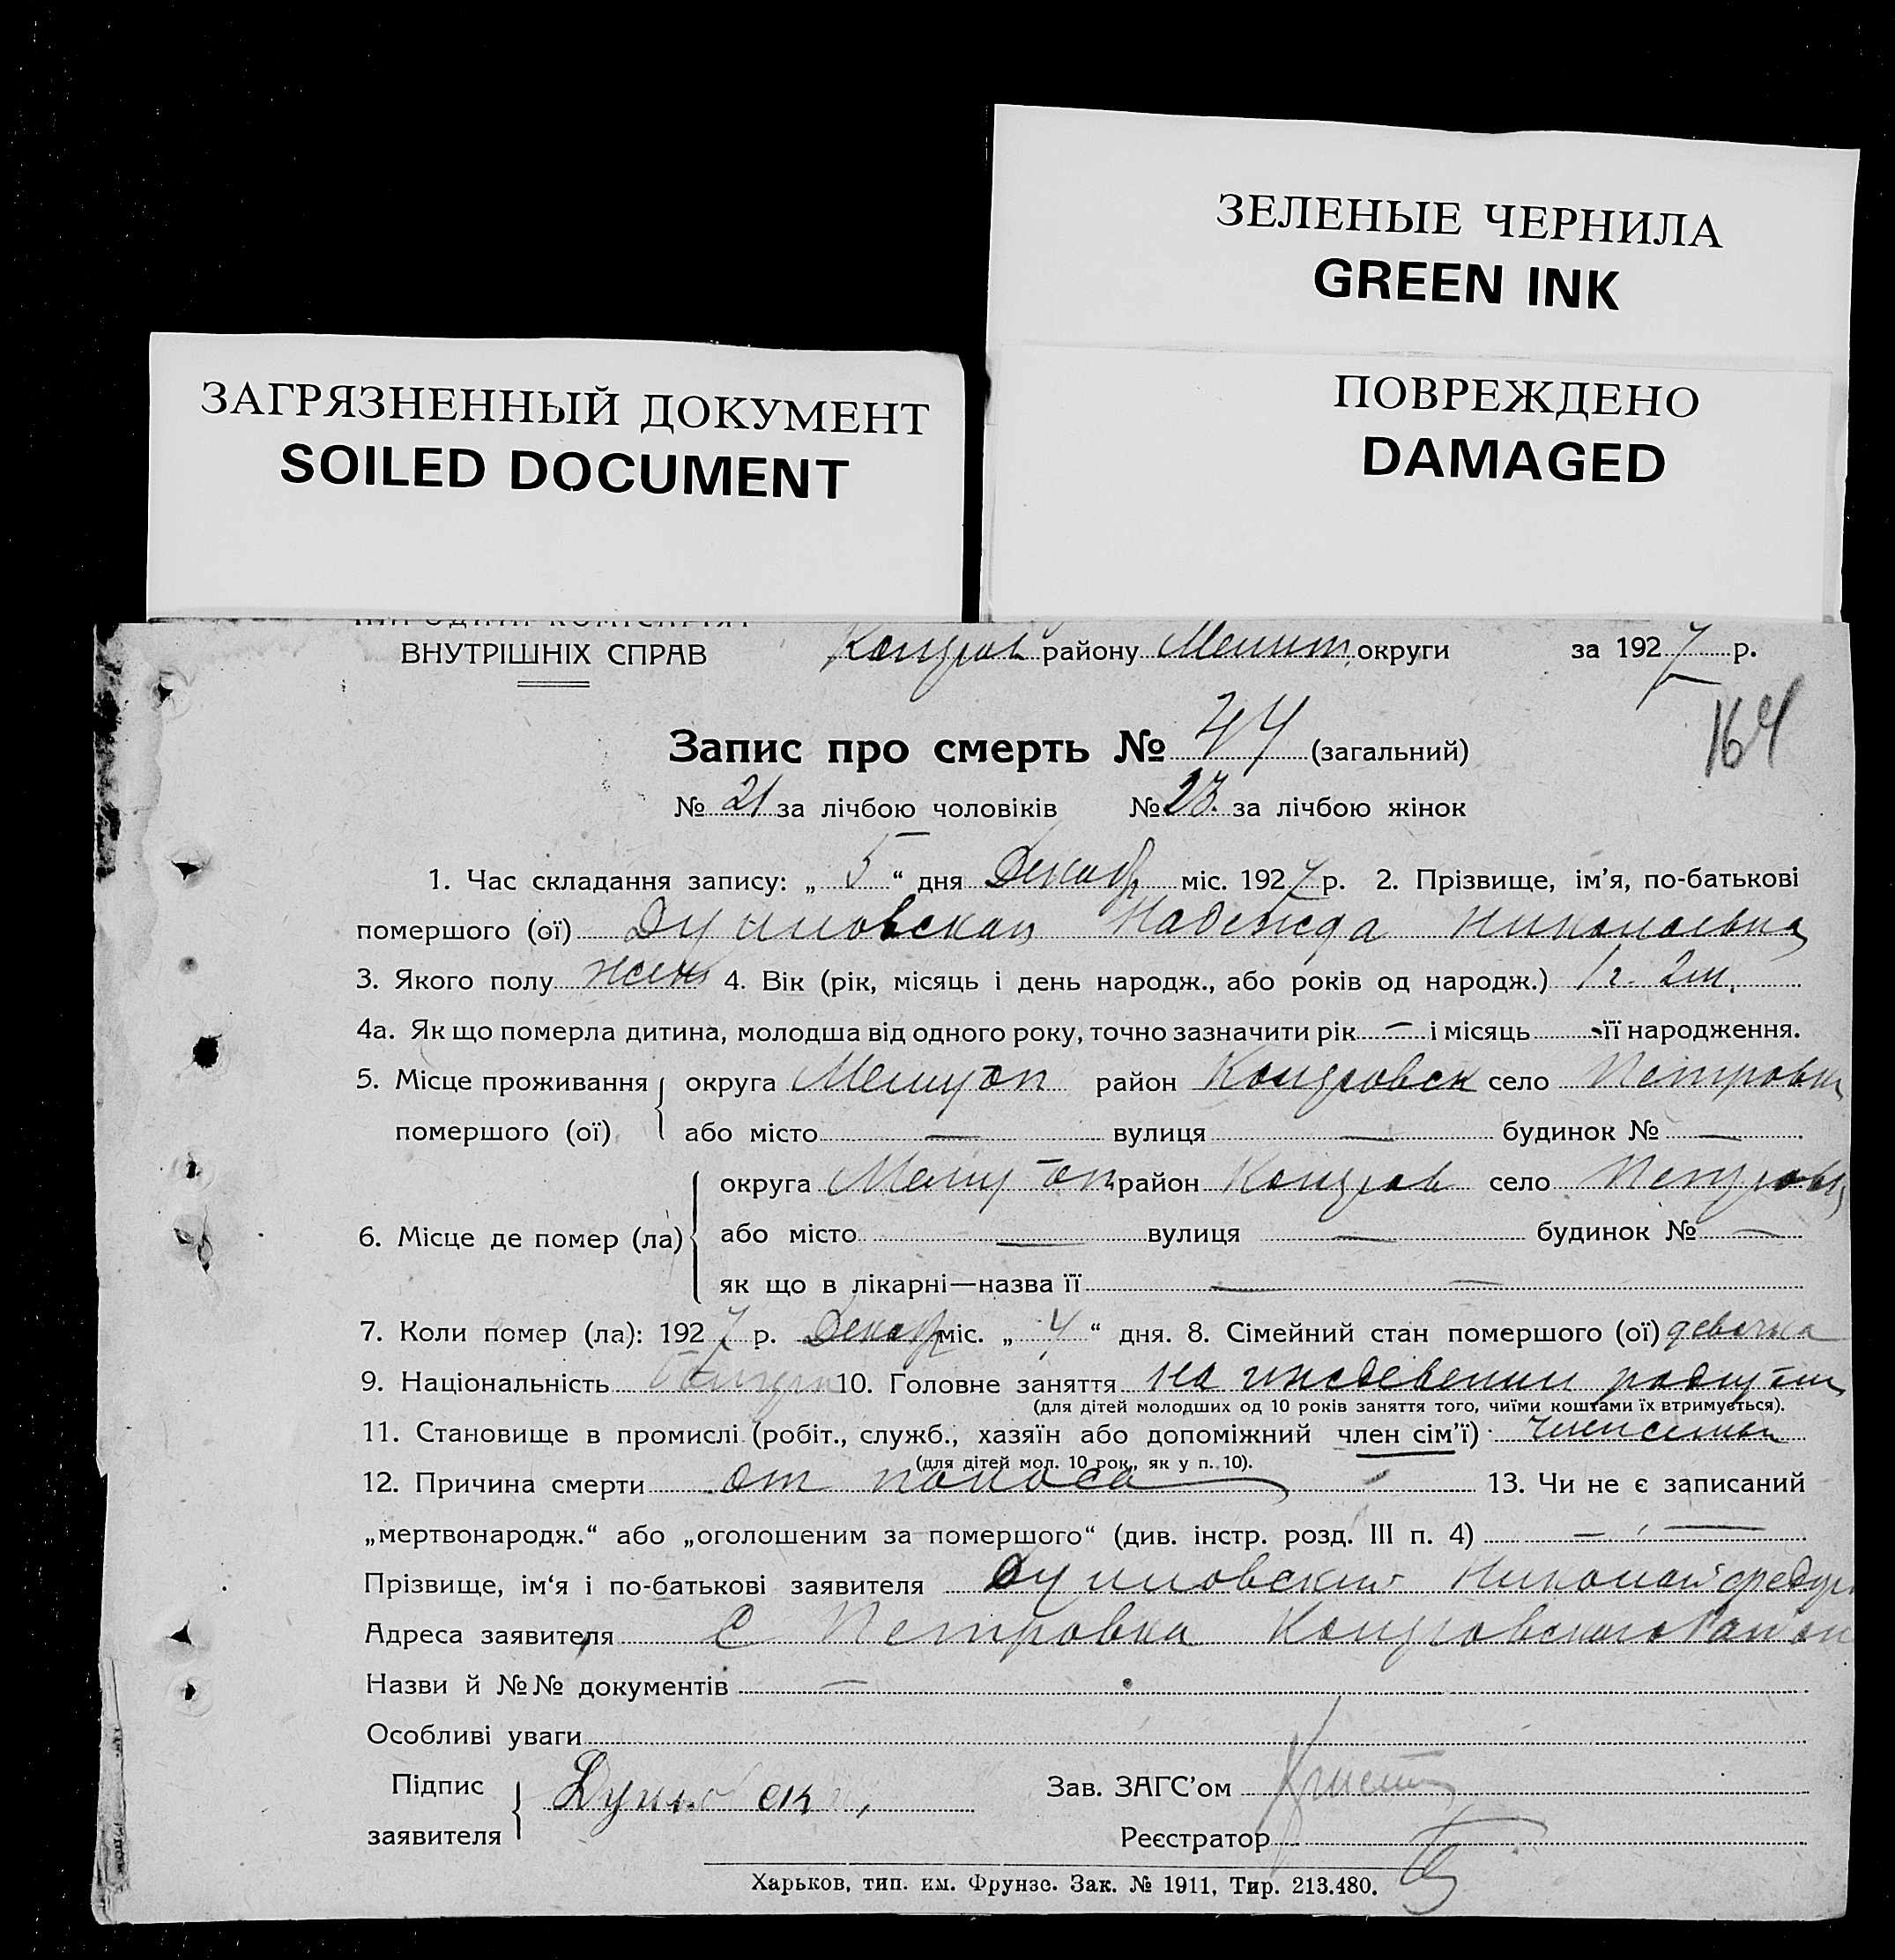 ЗЕЛЕНЫЕ ЧЕРНИЛА
GREEN INK
ЗАГРЯЗНЕННЫЙ ДОКУМЕНТ
SOILED DOCUMENT
ПОВРЕЖДЕНО
DAMAGED
ВНУТРІШНІХ СПРАВ району округи за 1927 р.
164
Запис про смерть № 44 (загальний)
№ 21 за лічбою чоловіків № 23. за лічбою жінок
1. Час складання запису: „ 5 “ дня Декабр міс. 1927 р. 2. Прізвище, ім’я, по-батькові
помершого (ої) Надежда Николаевна
3. Якого полу жен 4. Вік (рік, місяць і день народж., або років од народж.) 1 г. 2 м.
4а. Як що померла дитина, молодша від одного року, точно зазначити рік — і місяць - її народження.
5. Місце проживання округа район село Петровка
помершого (ої) або місто — вулиця — будинок № —
округа район село
6. Місце де помер (ла) або місто — вулиця — будинок № —
як що в лікарні—назва її — —
7. Коли помер (ла): 1927 р. Декабр міс. „ 4 “ дня. 8. Сімейний стан помершого (ої) девочка
9. Національність 10. Головне заняття на
(для дітей молодших од 10 років заняття того, чиїми коштами їх втримується).
11. Становище в промислі (робіт., служб., хазяїн або допоміжний член сім’ї) член семьи
(для дітей мол. 10 рок., як у п. 10).
12. Причина смерти от поноса 13. Чи не є записаний
„мертвонародж.“ або „оголошеним за помершого“ (див. інстр. розд. III п. 4) — —
Прізвище, ім‘я і по-батькові заявителя Николай
Адреса заявителя С Петровка
Назви й №№ документів —
Особливі уваги
Підпис Зав. ЗАГС’ом
заявителя Реєстратор
Харьков, тип. им. Фрунзе. Зак. № 1911, Тир. 213.480.